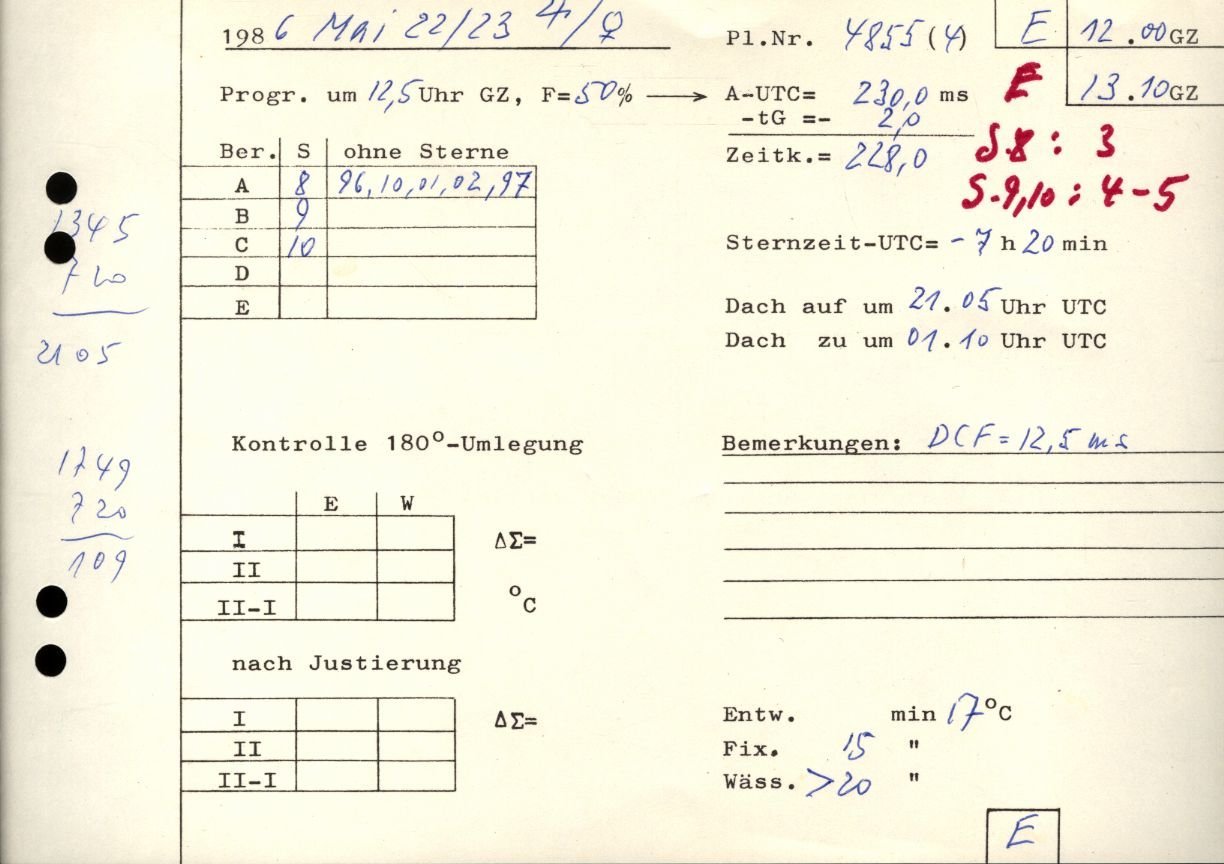 1986 Mai 22/23 ♃/♀
Pl.Nr. 4855(4)
E 12.00GZ
Progr. um 12,5 Uhr GZ, F=50% → A-UTC= 230,0 ms
E 13.10GZ
-tG =- 2,0
Zeitk.= 228,0
S.8: 3
S.9,10: 4-5
Ber. S ohne Sterne
A 8 96,10,01,02,97
B 9
C 10
D
E
1345
720
2105
Sternzeit-UTC= -7 h 20 min
Dach auf um 21.05 Uhr UTC
Dach zu um 01.10 Uhr UTC
Kontrolle 180°-Umlegung
Bemerkungen: DCF=12,5 ms
1749
720
109
E W
I ΔΣ=
II
II-I °C
nach Justierung
I ΔΣ=
II
II-I
Entw. min 17°C
Fix. 15 "
Wäss. >20 "
E